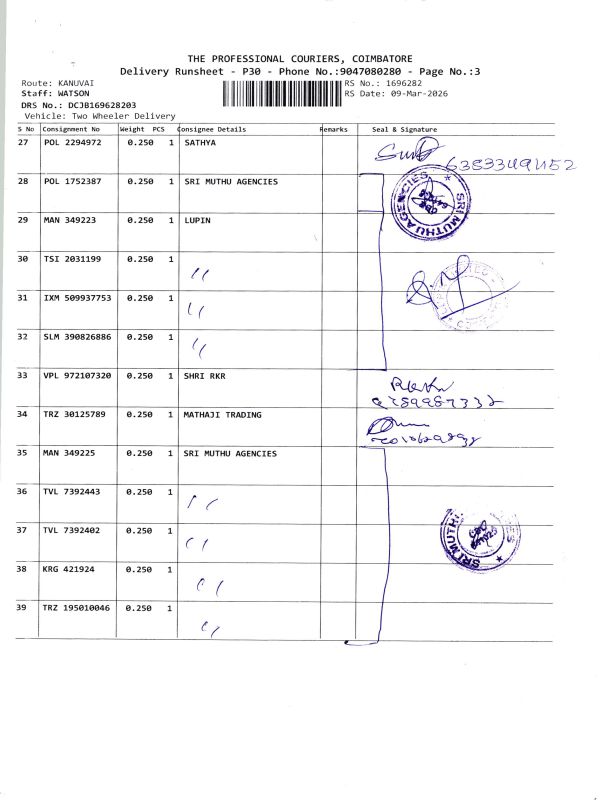 THE PROFESSIONAL COURIERS, COIMBATORE
Delivery Runsheet - P30 - Phone No.:9047080280 - Page No.:3
Route: KANUVAI
RS No.: 1696282
Staff: WATSON
RS Date: 09-Mar-2026
DRS No.: DCJB169628203
Vehicle: Two Wheeler Delivery
S No Consignment No Weight PCS Consignee Details Remarks Seal & Signature
27 POL 2294972 0.250 1 SATHYA
28 POL 1752387 0.250 1 SRI MUTHU AGENCIES
SRI MUTHU AGENCIES
29 MAN 349223 0.250 1 LUPIN
30 TSI 2031199 0.250 1 "
31 IXM 509937753 0.250 1 "
32 SLM 390826886 0.250 1 "
33 VPL 972107320 0.250 1 SHRI RKR
34 TRZ 30125789 0.250 1 MATHAJI TRADING
35 MAN 349225 0.250 1 SRI MUTHU AGENCIES
36 TVL 7392443 0.250 1 "
37 TVL 7392402 0.250 1 "
SRI MUTHU
38 KRG 421924 0.250 1 "
39 TRZ 195010046 0.250 1 "